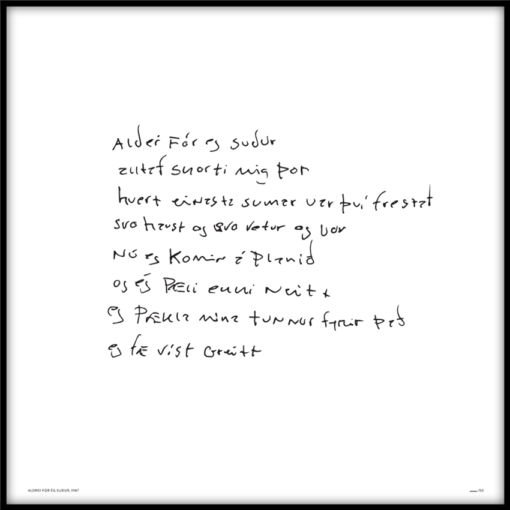 Aldrei Fór eg suður
alltaf skorti mig þor
hvert einasta sumar var því frestað
svo haust og svo vetur og vor
Nú eg Komin á Planið
og ég Pæli ekki Neitt
eg Pækla mína tunnur fyrir það
eg fæ víst Greitt
ALDREI FÓR ÉG SUÐUR, 1987
/50